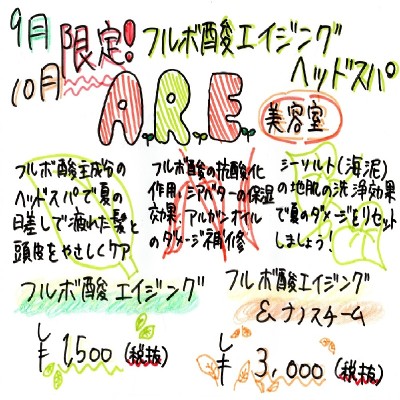 9月
10月
限定!
フルボ酸エイジング
ヘッドスパ
A.R.E.
美容室
フルボ酸主成分の
ヘッドスパで夏の
日差しで疲れた髪と
頭皮をやさしくケア
フルボ酸の抗酸化
作用、シアバターの保湿
効果、アルガンオイル
のダメージ補修
シーソルト(海泥)
の地肌の洗浄効果
で夏のダメージをリセット
しましょう!
フルボ酸エイジング
¥1,500(税抜)
フルボ酸エイジング
&ナノスチーム
¥3,000(税抜)